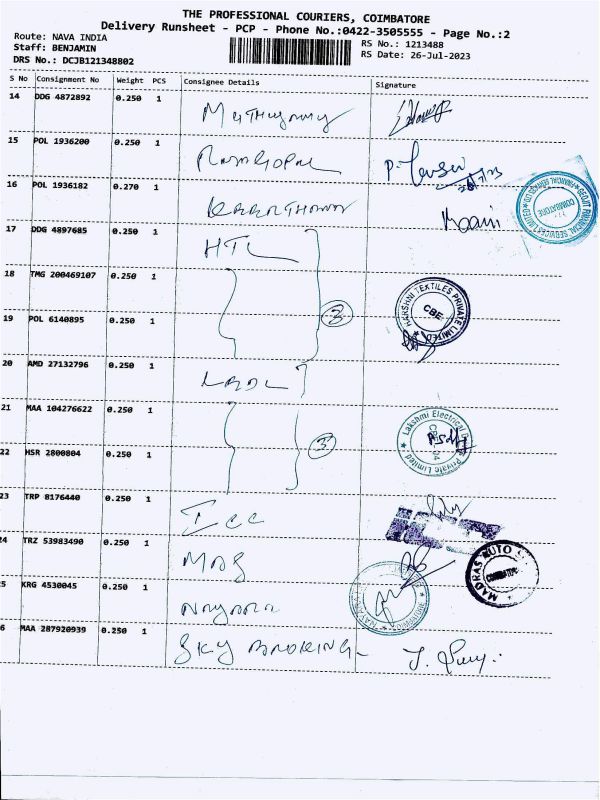 THE PROFESSIONAL COURIERS, COIMBATORE
Delivery Runsheet - PCP - Phone No.:0422-3505555 - Page No.:2
Route: NAVA INDIA
Staff: BENJAMIN
DRS No.: DCJB121348802
RS No.: 1213488
RS Date: 26-Jul-2023
S No Consignment No Weight PCS Consignee Details Signature
14 DDG 4872892 0.250 1
15 POL 1936200 0.250 1 RAMGOPAL
16 POL 1936182 0.270 1
17 DDG 4897685 0.250 1 HTL
18 TMG 200469107 0.250 1
3
19 POL 6140895 0.250 1
HARSHNI TEXTILES PRIVATE LIMITED
CBE
20 AMD 27132796 0.250 1
21 MAA 104276622 0.250 1
Lakshmi Electrical
Private Limited
22 HSR 2800804 0.250 1
3
23 TRP 8176440 0.250 1 ICC
24 TRZ 53983490 0.250 1
MADRAS AUTO
5 KRG 4530045 0.250 1
6 MAA 287920939 0.250 1 SKY BROKING-